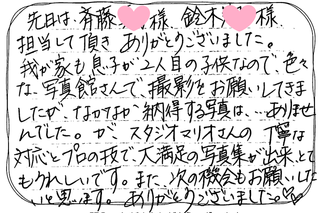 先日は、斉藤 様、鈴木 様、
担当して頂き ありがとうございました。
我が家も息子が2人目の子供なので、色々
な、写真館さんで、撮影をお願いしてきま
したが、なかなか納得する写真は、…ありませ
んでした。が スタジオマリオさんの 丁寧な
対応とプロの技で、大満足の写真集が出来、とて
もうれしいです。また、次の機会もお願いした
いと思います。ありがとうございました。